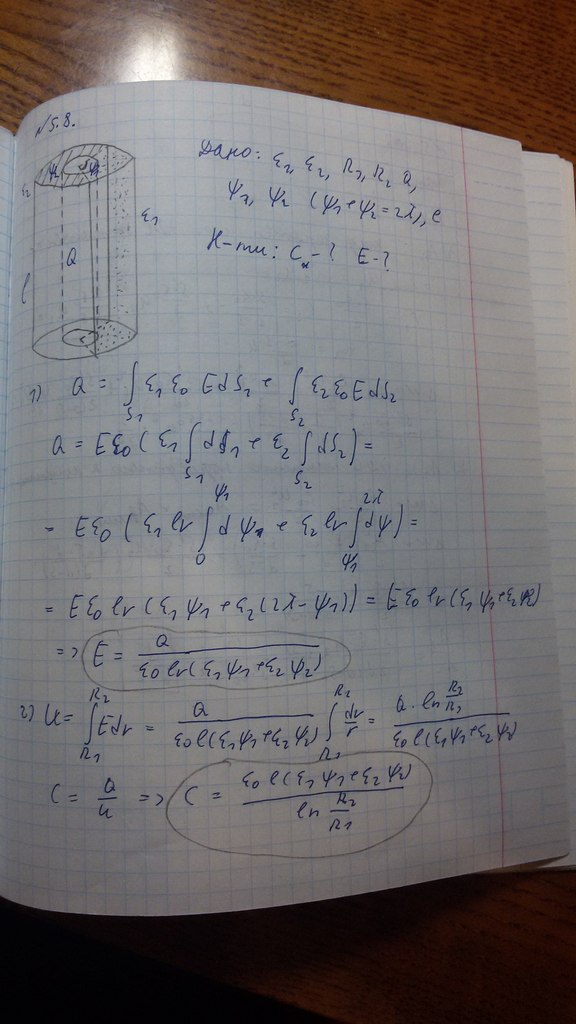 №5.8.
Дано: ε₁, ε₂, R₁, R₂ Q,
ψ₁, ψ₂ (ψ₁+ψ₂=2π), l
Н-ти: C - ? E - ?
ψ₂ ψ₁
ε₂ ε₁
Q
l
1) Q = ∫S₁ ε₁ε₀ E dS₁ + ∫S₂ ε₂ε₀ E dS₂
Q = Eε₀ (ε₁ ∫S₁ dS₁ + ε₂ ∫S₂ dS₂) =
= Eε₀ (ε₁ lr ∫₀^ψ₁ dψ + ε₂ lr ∫ψ₁^2π dψ) =
= Eε₀ lr (ε₁ψ₁ + ε₂(2π-ψ₁)) = Eε₀ lr (ε₁ψ₁+ε₂ψ₂)
=> E = Q / ε₀ lr(ε₁ψ₁+ε₂ψ₂)
2) U = ∫R₁^R₂ E dr = Q / ε₀ l(ε₁ψ₁+ε₂ψ₂) ∫R₁^R₂ dr/r = Q · ln R₂/R₁ / ε₀ l(ε₁ψ₁+ε₂ψ₂)
C = Q/U => C = ε₀ l(ε₁ψ₁+ε₂ψ₂) / ln R₂/R₁